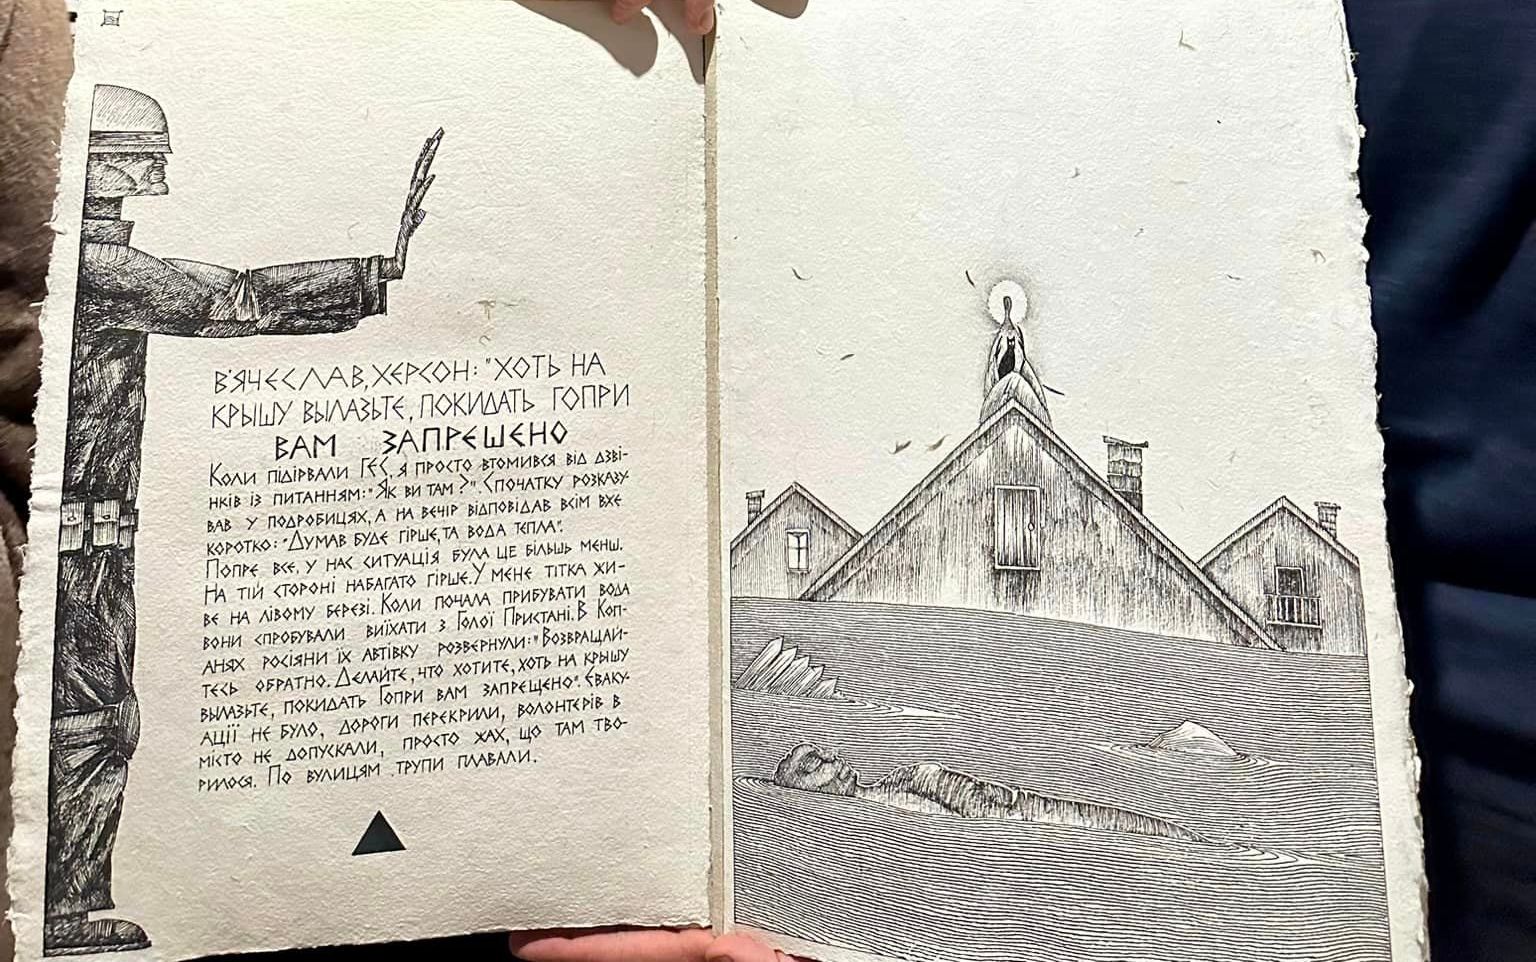 В'ЯЧЕСЛАВ, ХЕРСОН: "ХОТЬ НА
КРЫШУ ВЫЛАЗЬТЕ, ПОКИДАТЬ ГОПРИ
ВАМ ЗАПРЕЩЕНО
Коли підірвали ГЕС, я просто втомився від дзві-
нків із питанням: "Як ви там?". Спочатку розказу-
вав у подробицях, а на вечір відповідав всім вже
коротко: "Думав буде гірше, та вода тепла".
Попре все, у нас ситуація була ще більш менш.
На тій стороні набагато гірше. У мене тітка жи-
ве на лівому березі. Коли почала прибувати вода
вони спробували виїхати з Голої Пристані. В Коп-
анях росіяни їх автівку розвернули: "Возвращай-
тесь обратно. Делайте, что хотите, хоть на крышу
вылазьте, покидать Гопри вам запрещено". Еваку-
ації не було, дороги перекрили, волонтерів в
місто не допускали, просто жах, що там тво-
рилося. По вулицям трупи плавали.